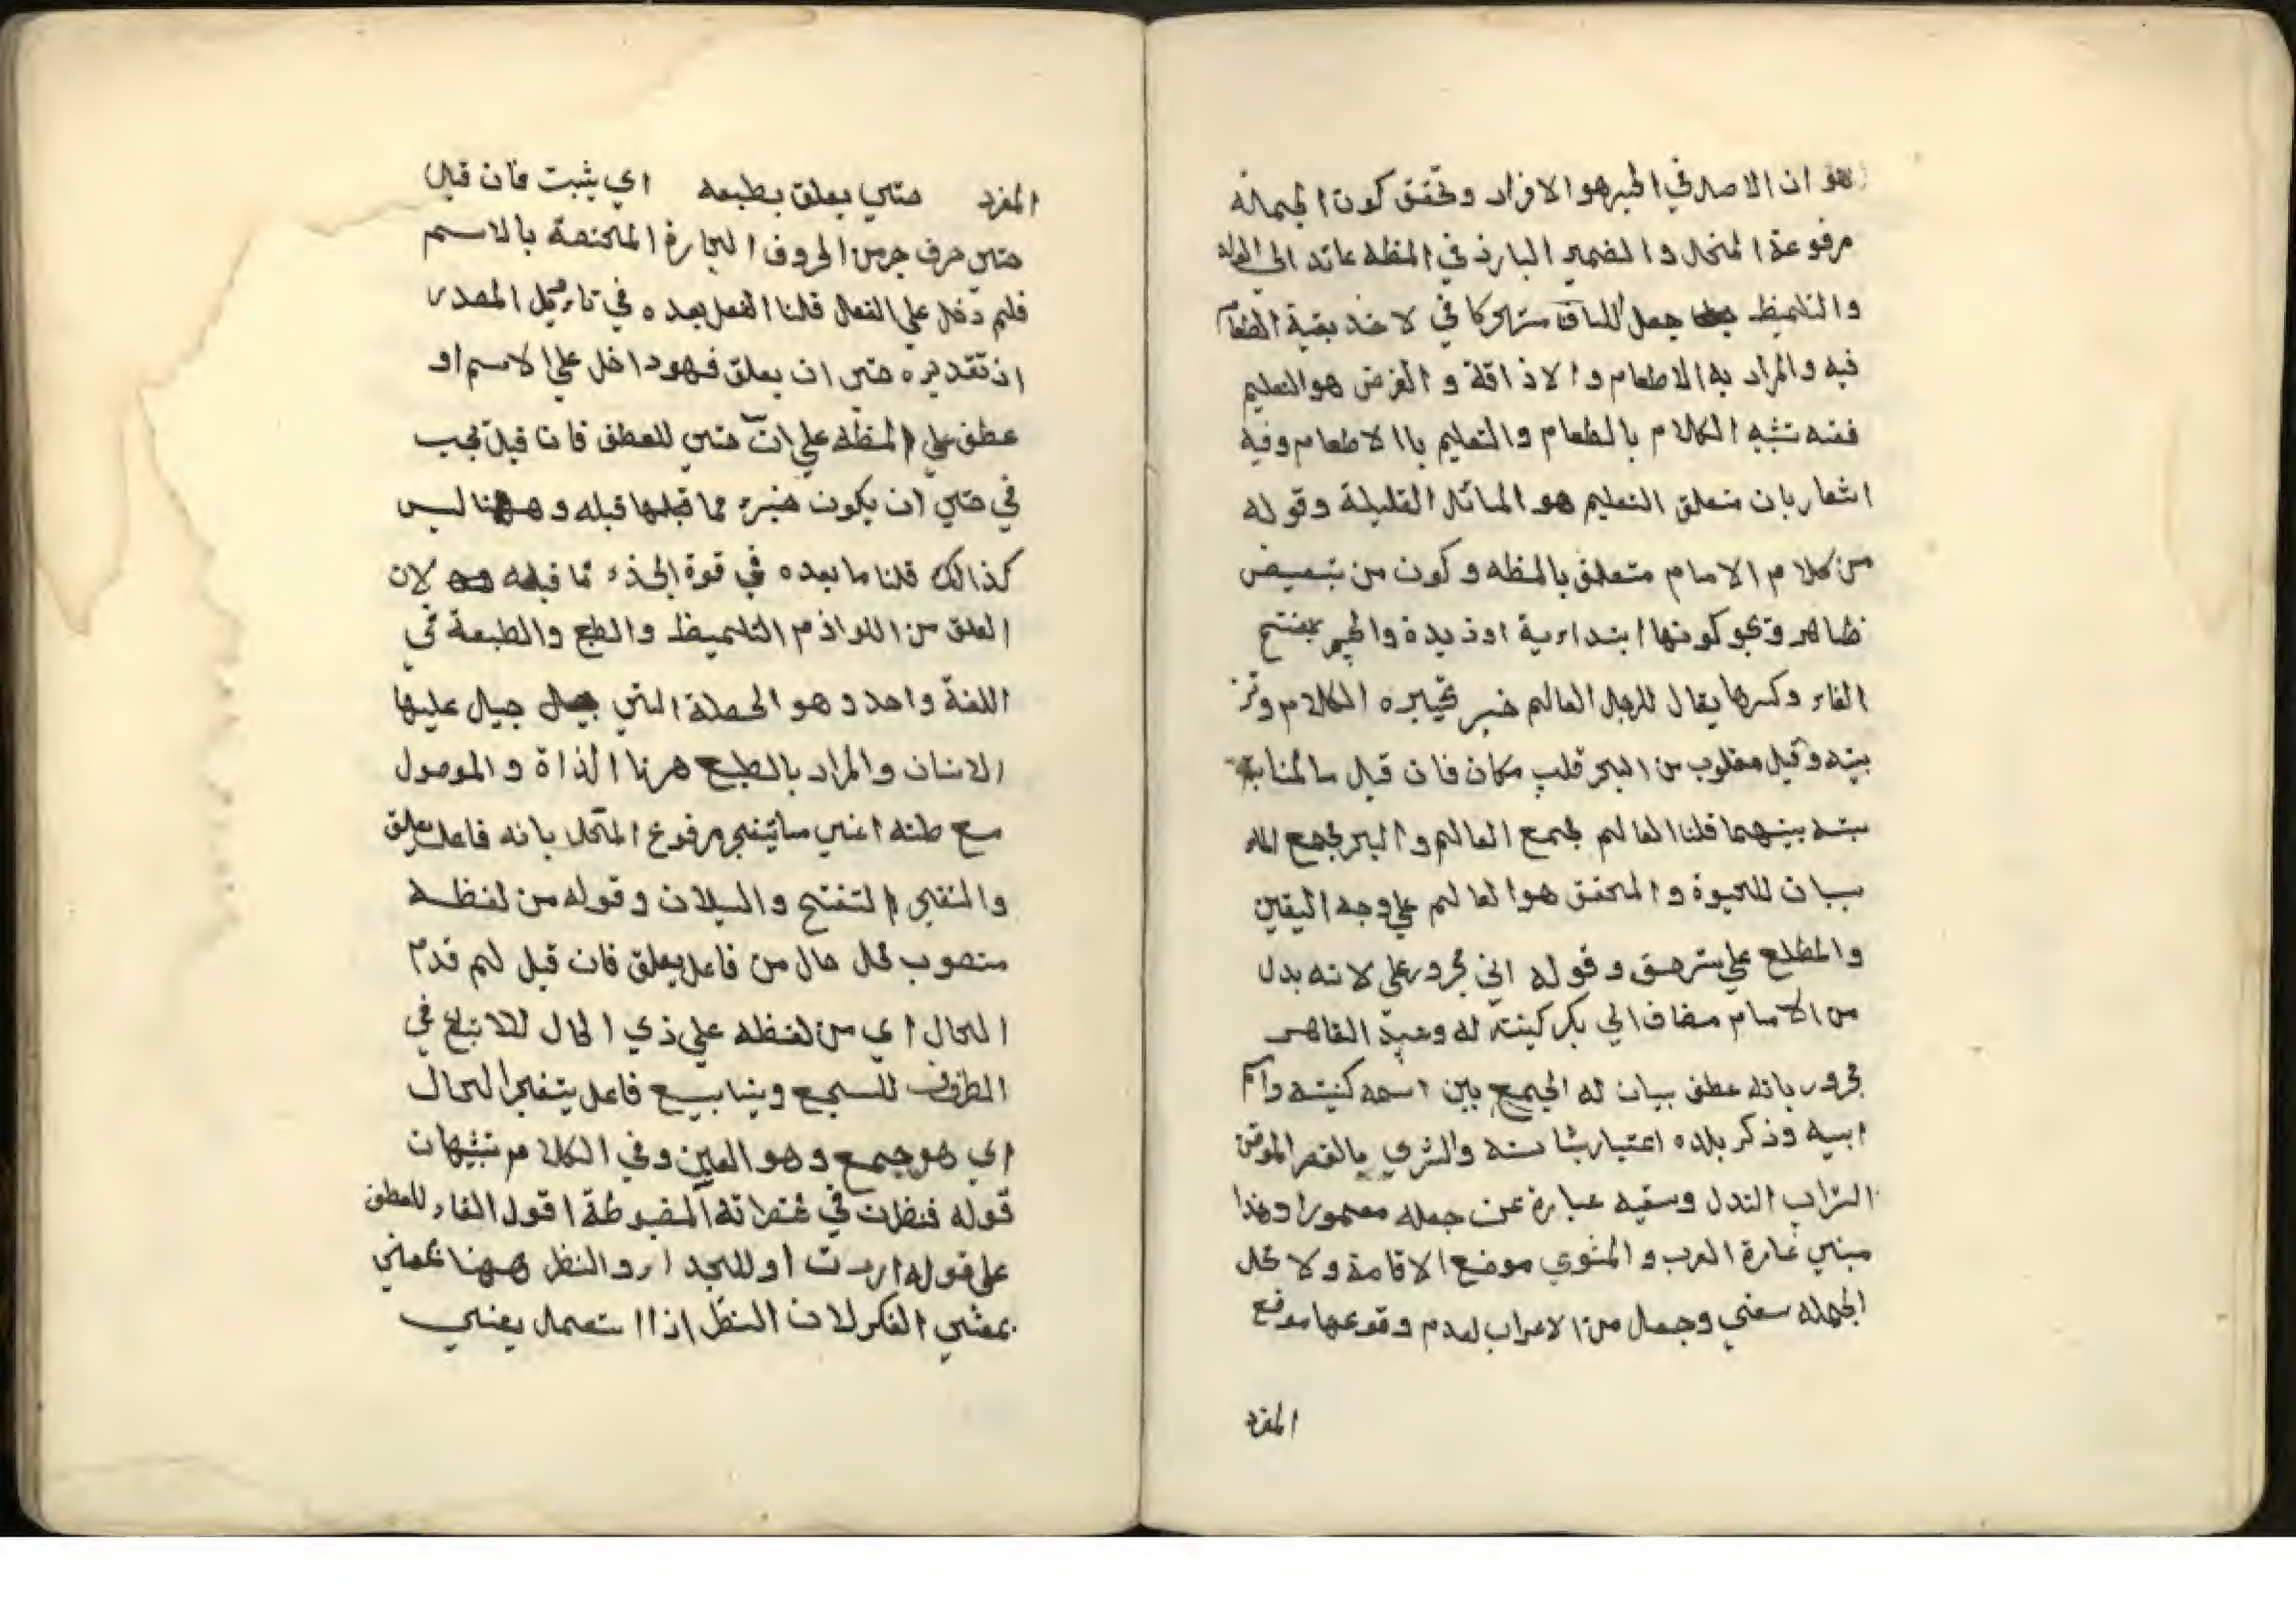 هو ان الاصل في الخبر هو الافراد وتحقق كون الجملة
مرفوعة المحل والضمير البارز في المظه عائد الي الولد
والتلميظ جعل اللسان متحركا في لاخذ بقية الطعام
فيه والمراد به الاطعام والاذاقة والغرض هو التعليم
ففيه تشبه الكلام بالطعام والتعليم باالاطعام وفيه
اشعار بان متعلق التعليم هو المسائل القليلة وقوله
من كلام الامام متعلق بالمظه وكون من تبعيض
ظاهر ويجو كونها ابتداءية او زيدة والحبر بفتح
الفاء وكسرها يقال للرجل العالم خبر تحبيره الكلام
بينه وقيل مقلوب من البحر قلب مكان فان قيل ما المنا
سبة بينهما قلنا العالم مجمع العالم والبحر مجمع الماء
بيان للحيوة والمحقق هو العالم علي وجه اليقين
والمطلع علي وقوله ابي مجرور علي لانه بدل
من الامام مضاف الي بكر كينة له وعبد القاهر
مجرور بانه عطف بيان له الجمع بين اسمه كنيته
ابيه وذكر بلده والثري بالقصر
التراب الندل وسقيه عبارة عن جعله معمورا وهذا
مبني العرب والمثوي موضع الاقامة ولا محل
الجمله سقي وجعل من الاعراب لعدم وقوعها موقع
المفرد
المفرد حتي يعلق بطبعه اي يثبت فان قيل
حتي حرف جر من الحروف الجارة المختصة بالاسم
فلم دخل علي الفعل قلنا الفعل بعده في تاءويل المصدر
اذ تقديره حتي ان يعلق فهو داخل علي الاسم او
عطف علي المظه علي ان حتي للعطف فان قيل يجب
في حتي ان يكون مما قبلها قبله وههنا ليس
كذالك قلنا ما بعده في قوة الجذء مما قبله لان
العلق من اللوازم التلميظ والطبع والطبعة في
اللغة واحد وهو الخصلة التي جبل عليها
الانسان والمراد بالطبع هرنا الذاة والموصول
مع صلته اعني ما يتفجر مرفوع المحل بانه فاعل يعلق
والتفجر التفتح والسيلان وقوله من لفظه
منصوب محل حال من فاعل يعلق فان قيل لم قدم
الحال اي من لفظه علي ذي الحال للاتباع في
الظروف للسجع وينابيع فاعل يتفجر الحال
اي هو جمع وهو العين وفي الكلام تشبيهات
قوله فنظرت في مختصراته المضبوطة اقول الفاء للعطف
علي قوله اردت او للجد والنظر ههنا بمعني
بمعني الفكر لان النظر اذا استعمل يعني